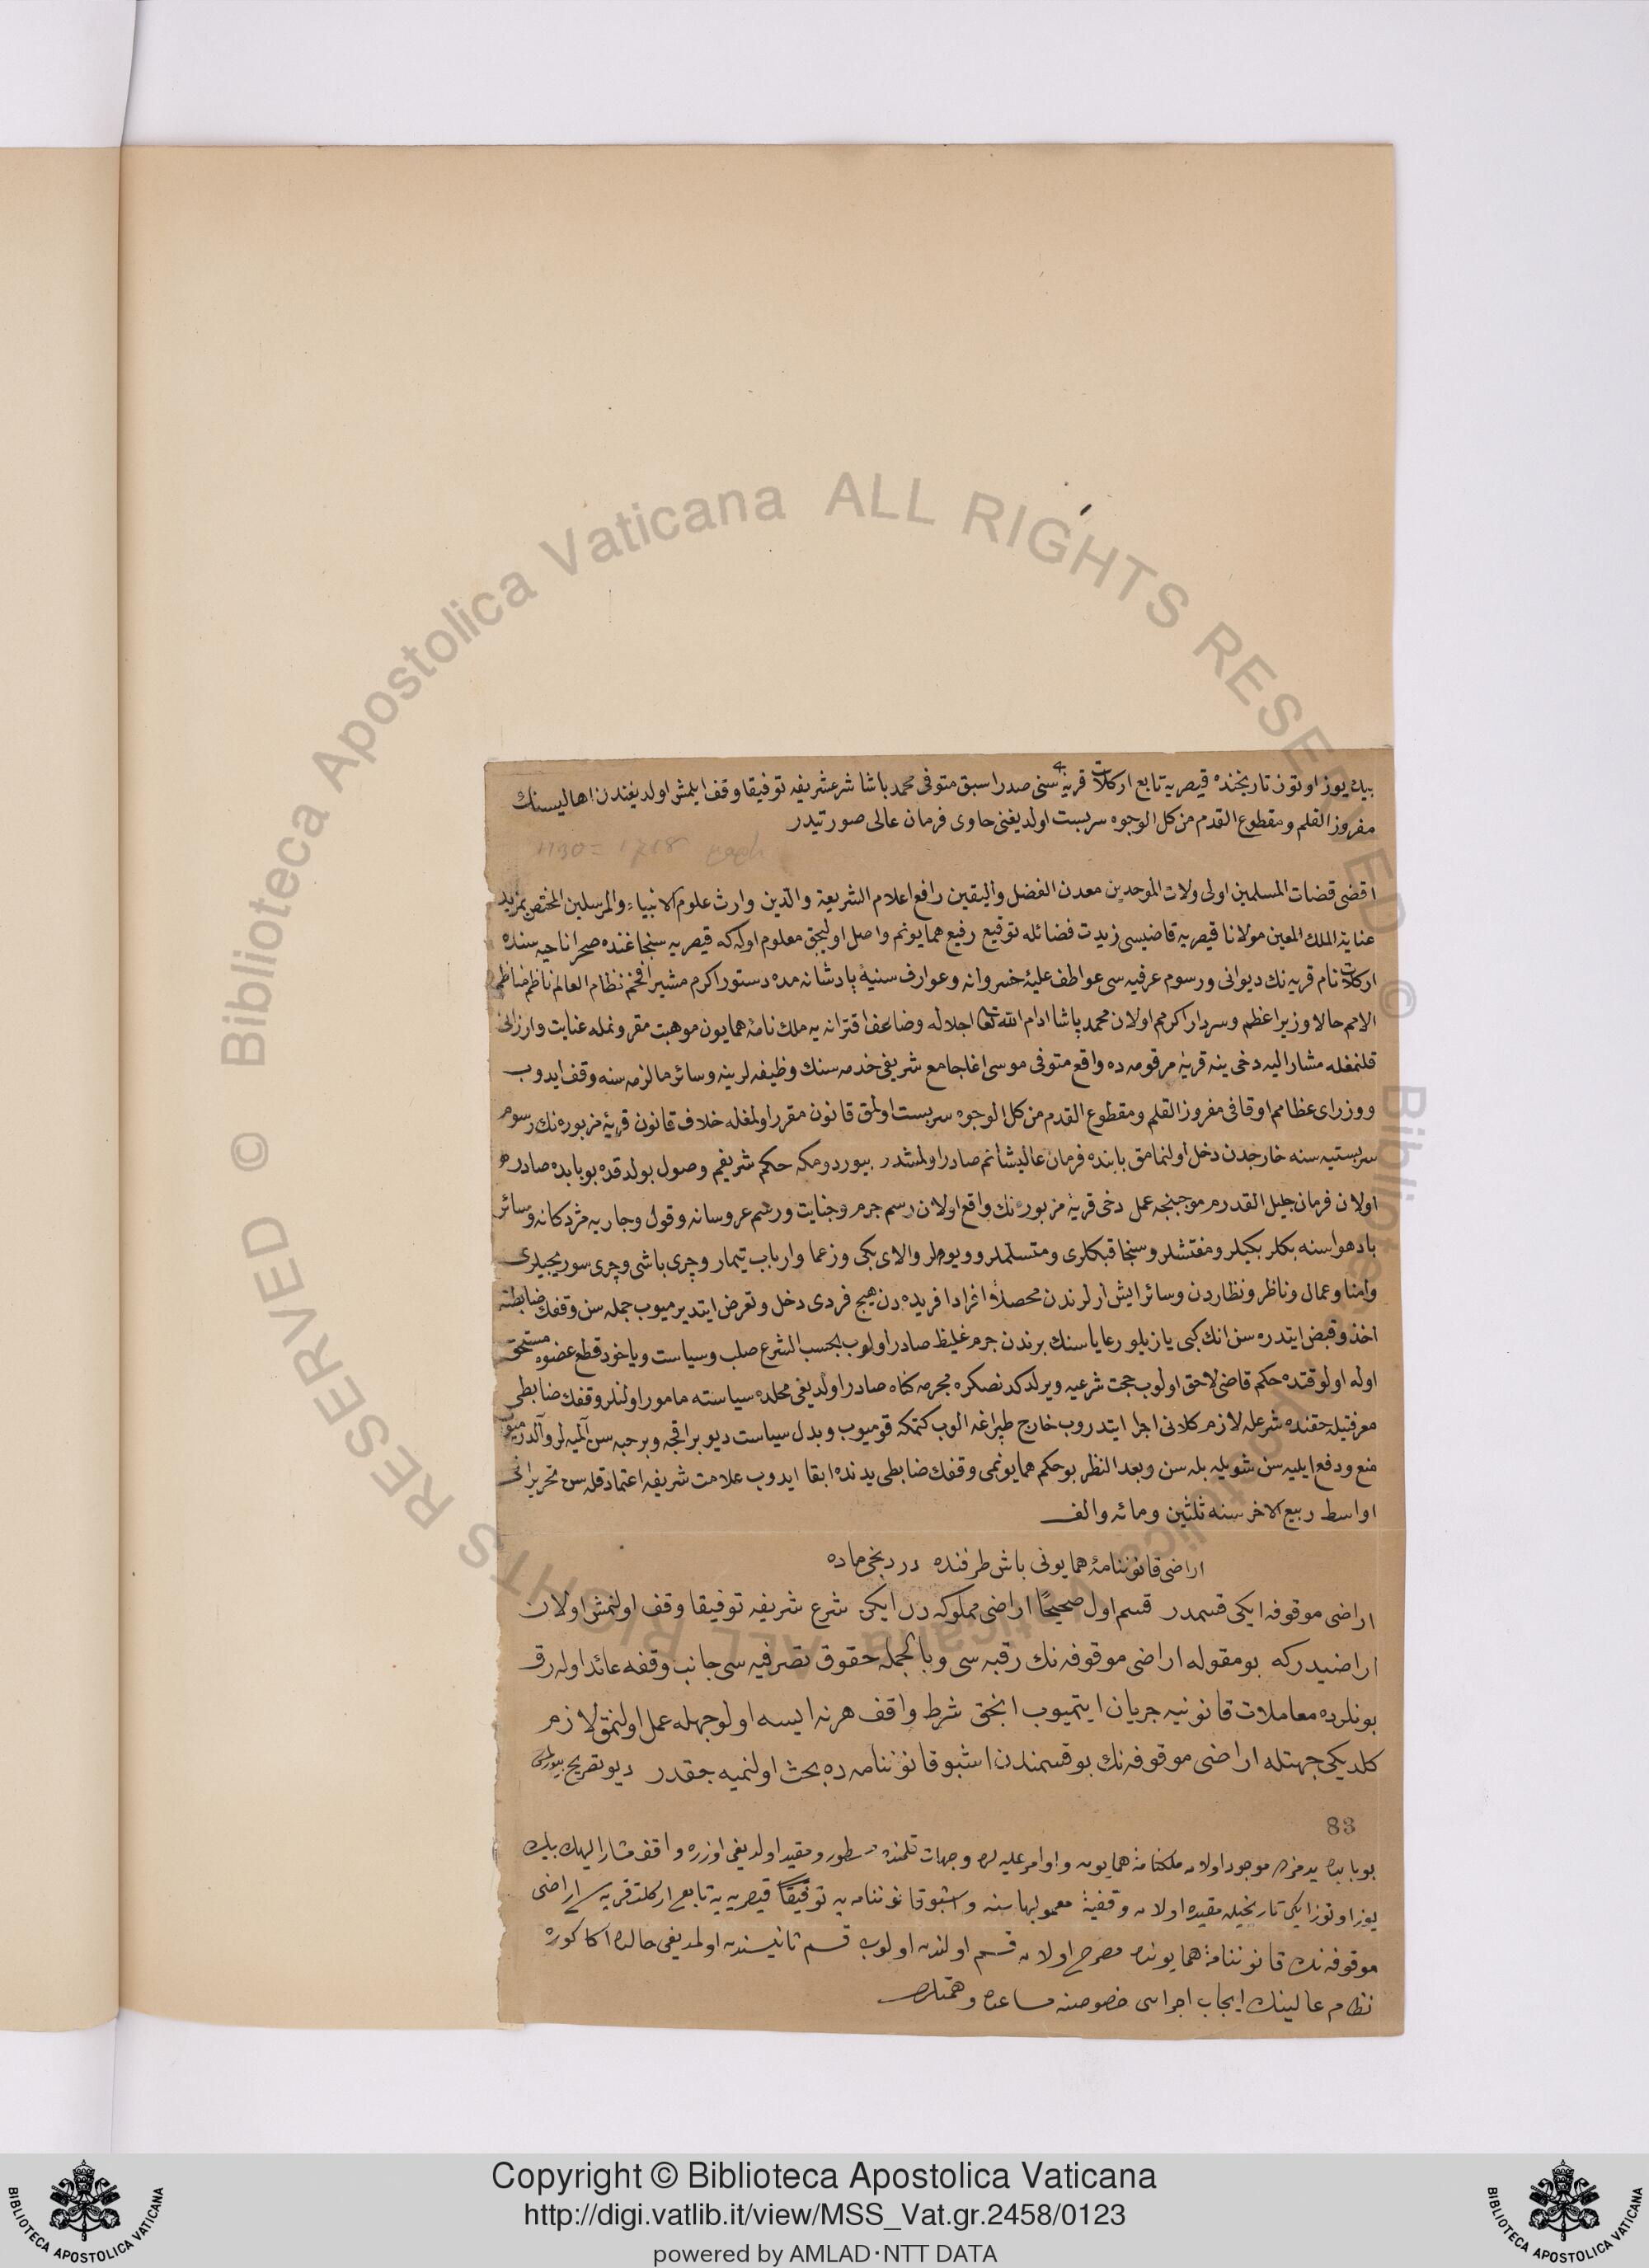 بيك يوز اوتوز تاريخنده قيصريه تابع اركلات قريه سنى صدر اسبق متوفى محمد باشا شرع شريفه توفيقا وقف ايلمش اولديغندن اهاليسنك
مفروز القلم ومقطوع القدم من كل الوجوه سربست اولديغنى حاوى فرمان عالى صورتيدر
1130 = 1718
اقضى قضات المسلمين اولى ولات الموحدين معدن الفضل واليقين رافع اعلام الشريعة والدين وارث علوم الانبياء والمرسلين المختص بمزيد
عناية الملك المعين مولانا قيصريه قاضيسى زيدت فضائله توقيع رفيع همايونم واصل اوليجق معلوم اوله كه قيصريه سنجاغنده صحرا ناحيه سنده
اركلات نام قريه نك ديوانى ورسوم عرفيه سى عواطف عليۀ خسروانه وعوارف سنيۀ پادشانه مده دستور اكرم مشير افخم نظام العالم ناظم مناظم
الامم حالا وزير اعظم وسردار اكرمم اولان محمد پاشا ادام الله تعا اجلاله وضاعف اقترانه يه ملك نامۀ همايون موهبت مقرونمله عنايت وارزانى
قلنمغله مشار اليه دخى ينه قريۀ مرقومه ده واقع متوفى موسى اغا جامع شريفى خدمه سنك وظيفه لرينه وسائر مالزمه سنه وقف ايدوب
ووزراى عظامم اوقافى مفروز القلم ومقطوع القدم من كل الوجوه سربست اولمق قانون مقرر اولمغله خلاف قانون قريۀ مزبوره نك رسوم
سربستيه سنه خارجدن دخل اولنمامق بابنده فرمان عاليشانم صادر اولمشدر بيوردومكه حكم شريفم وصول بولدقده بو بابده صادر
اولان فرمان جليل القدرم موجبنجه عمل دخى قريۀ مزبوره نك واقع اولان رسم جرم وجنايت ورسم عروسانه وقول وجاريه مژدكانه وسائر
بادهواسنه بكلربكيلر ومفتشلر وسنجاقبكلرى ومتسلملر وويوه لر والاى بكى وزعما وارباب تيمار وچرى باشى وچرى سوريجيلرى
وامنا وعمال وناظر ونظاردن وسائر ايش ارلرندن محصلا افراد افريده دن هيچ فردى دخل وتعرض ايتديرميوب جمله سن وقفك ضابطنه
اخذ وقبض ايتدره سن انك كبى يازيلو رعاياسنك برندن جرم غليظ صادر اولوب بحسب الشرع صلب وسياست ويا خود قطع عضوه مستحق
اوله اول وقتده حكم قاضى لاحق اولوب حجت شرعيه ويرلدكدنصكره مجرمه كناه صادر اولديغى محلده سياسته مامور اولنلر وقفك ضابطى
معرفتيله حقنده شرعله لازم كلانى اجرا ايتدروب خارج طپراغه الوب كتمكه قوميوب وبدل سياست ديو بر اقچه وبر حبه سن آلميه لر وآلدرميوب
منع ودفع ايليه سن شويله بله سن وبعد النظر بو حكم همايونمى وقفك ضابطى يدنده ابقا ايدوب علامت شريفه اعتماد قله سن تحريرا فى
اواسط ربيع الاخر سنه ثلثين ومائه والف
اراضى قانوننامۀ همايونى باش طرفنده دردنجى ماده
اراضى موقوفه ايكى قسمدر قسم اول صحيحًا اراضى مملوكه دن ايكن شرع شريفه توفيقا وقف اولنمش اولان
اراضيدركه بو مقوله اراضى موقوفه نك رقبه سى وبالجمله حقوق تصرفيه سى جانب وقفه عائد اوله رق
بونلرده معاملات قانونيه جريان ايتميوب انجق شرط واقف هرنه ايسه اولوجهله عمل اولنمق لازم
كلديكى جهتله اراضى موقوفه نك بو قسمندن اشبو قانوننامه ده بحث اولنميه جقدر ديو تصريح بيورلمش
83
بو بابده يدمزده موجود اولان ملكنامۀ همايون واوامر عليه لره وجهات قلمنده مسطور ومقيد اولديغى اوزره واقف مشار اليهك بيك
يوز اوتوز ايكى تاريخيله مقيده اولان وقفيۀ معمول بهاسنه واشبو قانوننامه يه توفيقًا قيصريه يه تابع اركلات قريه سى اراضى
موقوفه نك قانوننامۀ همايونده مصرح اولان قسم اولندن اولوب قسم ثانيسندن اولمديغى حالده اكا كوره
نظام عالينك ايجاب اجراسى خصوصنه مساعده وهمتلره